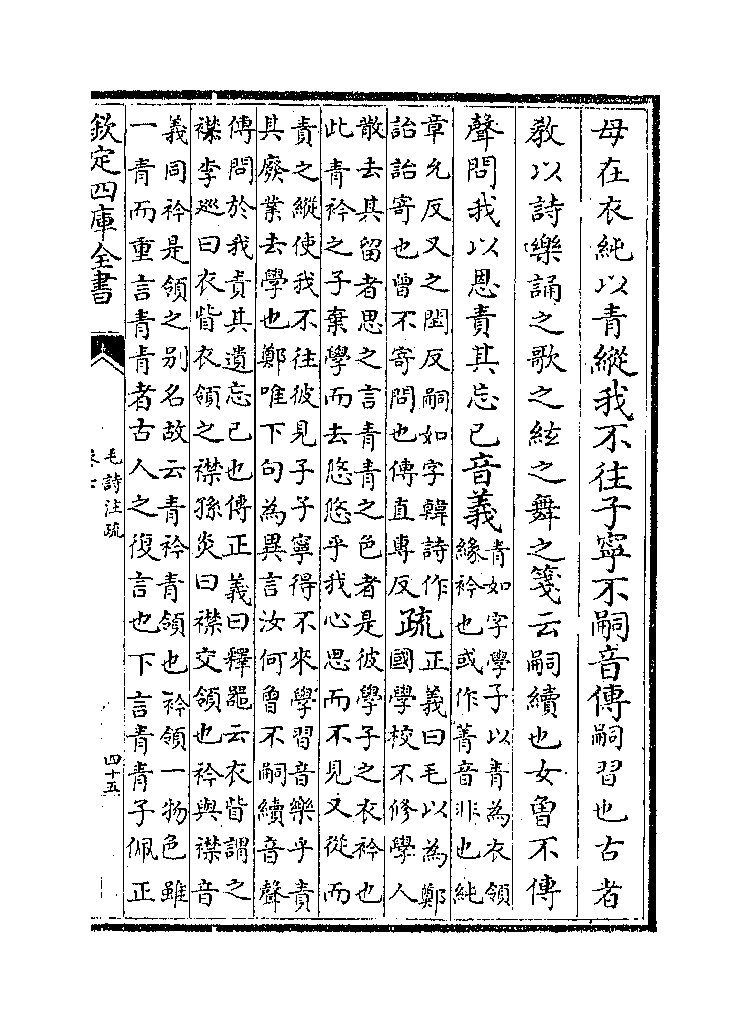 母在衣純以青縱我不往子寧不嗣音傳嗣習也古者
教以詩樂誦之歌之絃之舞之箋云嗣續也女曾不傳
聲問我以恩責其忘己音義
青如字學子以青為衣領
緣衿也或作菁音非也純
章允反又之閏反嗣如字韓詩作
詒詒寄也曾不寄問也傳直專反
疏
正義曰毛以為鄭
國學校不修學人
散去其留者思之言青青之色者是彼學子之衣衿也
此青衿之子棄學而去悠悠乎我心思而不見又從而
責之縱使我不往彼見子子寧得不來學習音樂乎責
其廢業去學也鄭唯下句為異言汝何曾不嗣續音聲
傳問於我責其遺忘己也傳正義曰釋器云衣眥謂之
襟李巡曰衣眥衣領之襟孫炎曰襟交領也衿與襟音
義同衿是領之别名故云青衿青領也衿領一物色雖
一青而重言青青者古人之復言也下言青青子佩正
欽定四庫全書
毛詩注疏
四十五